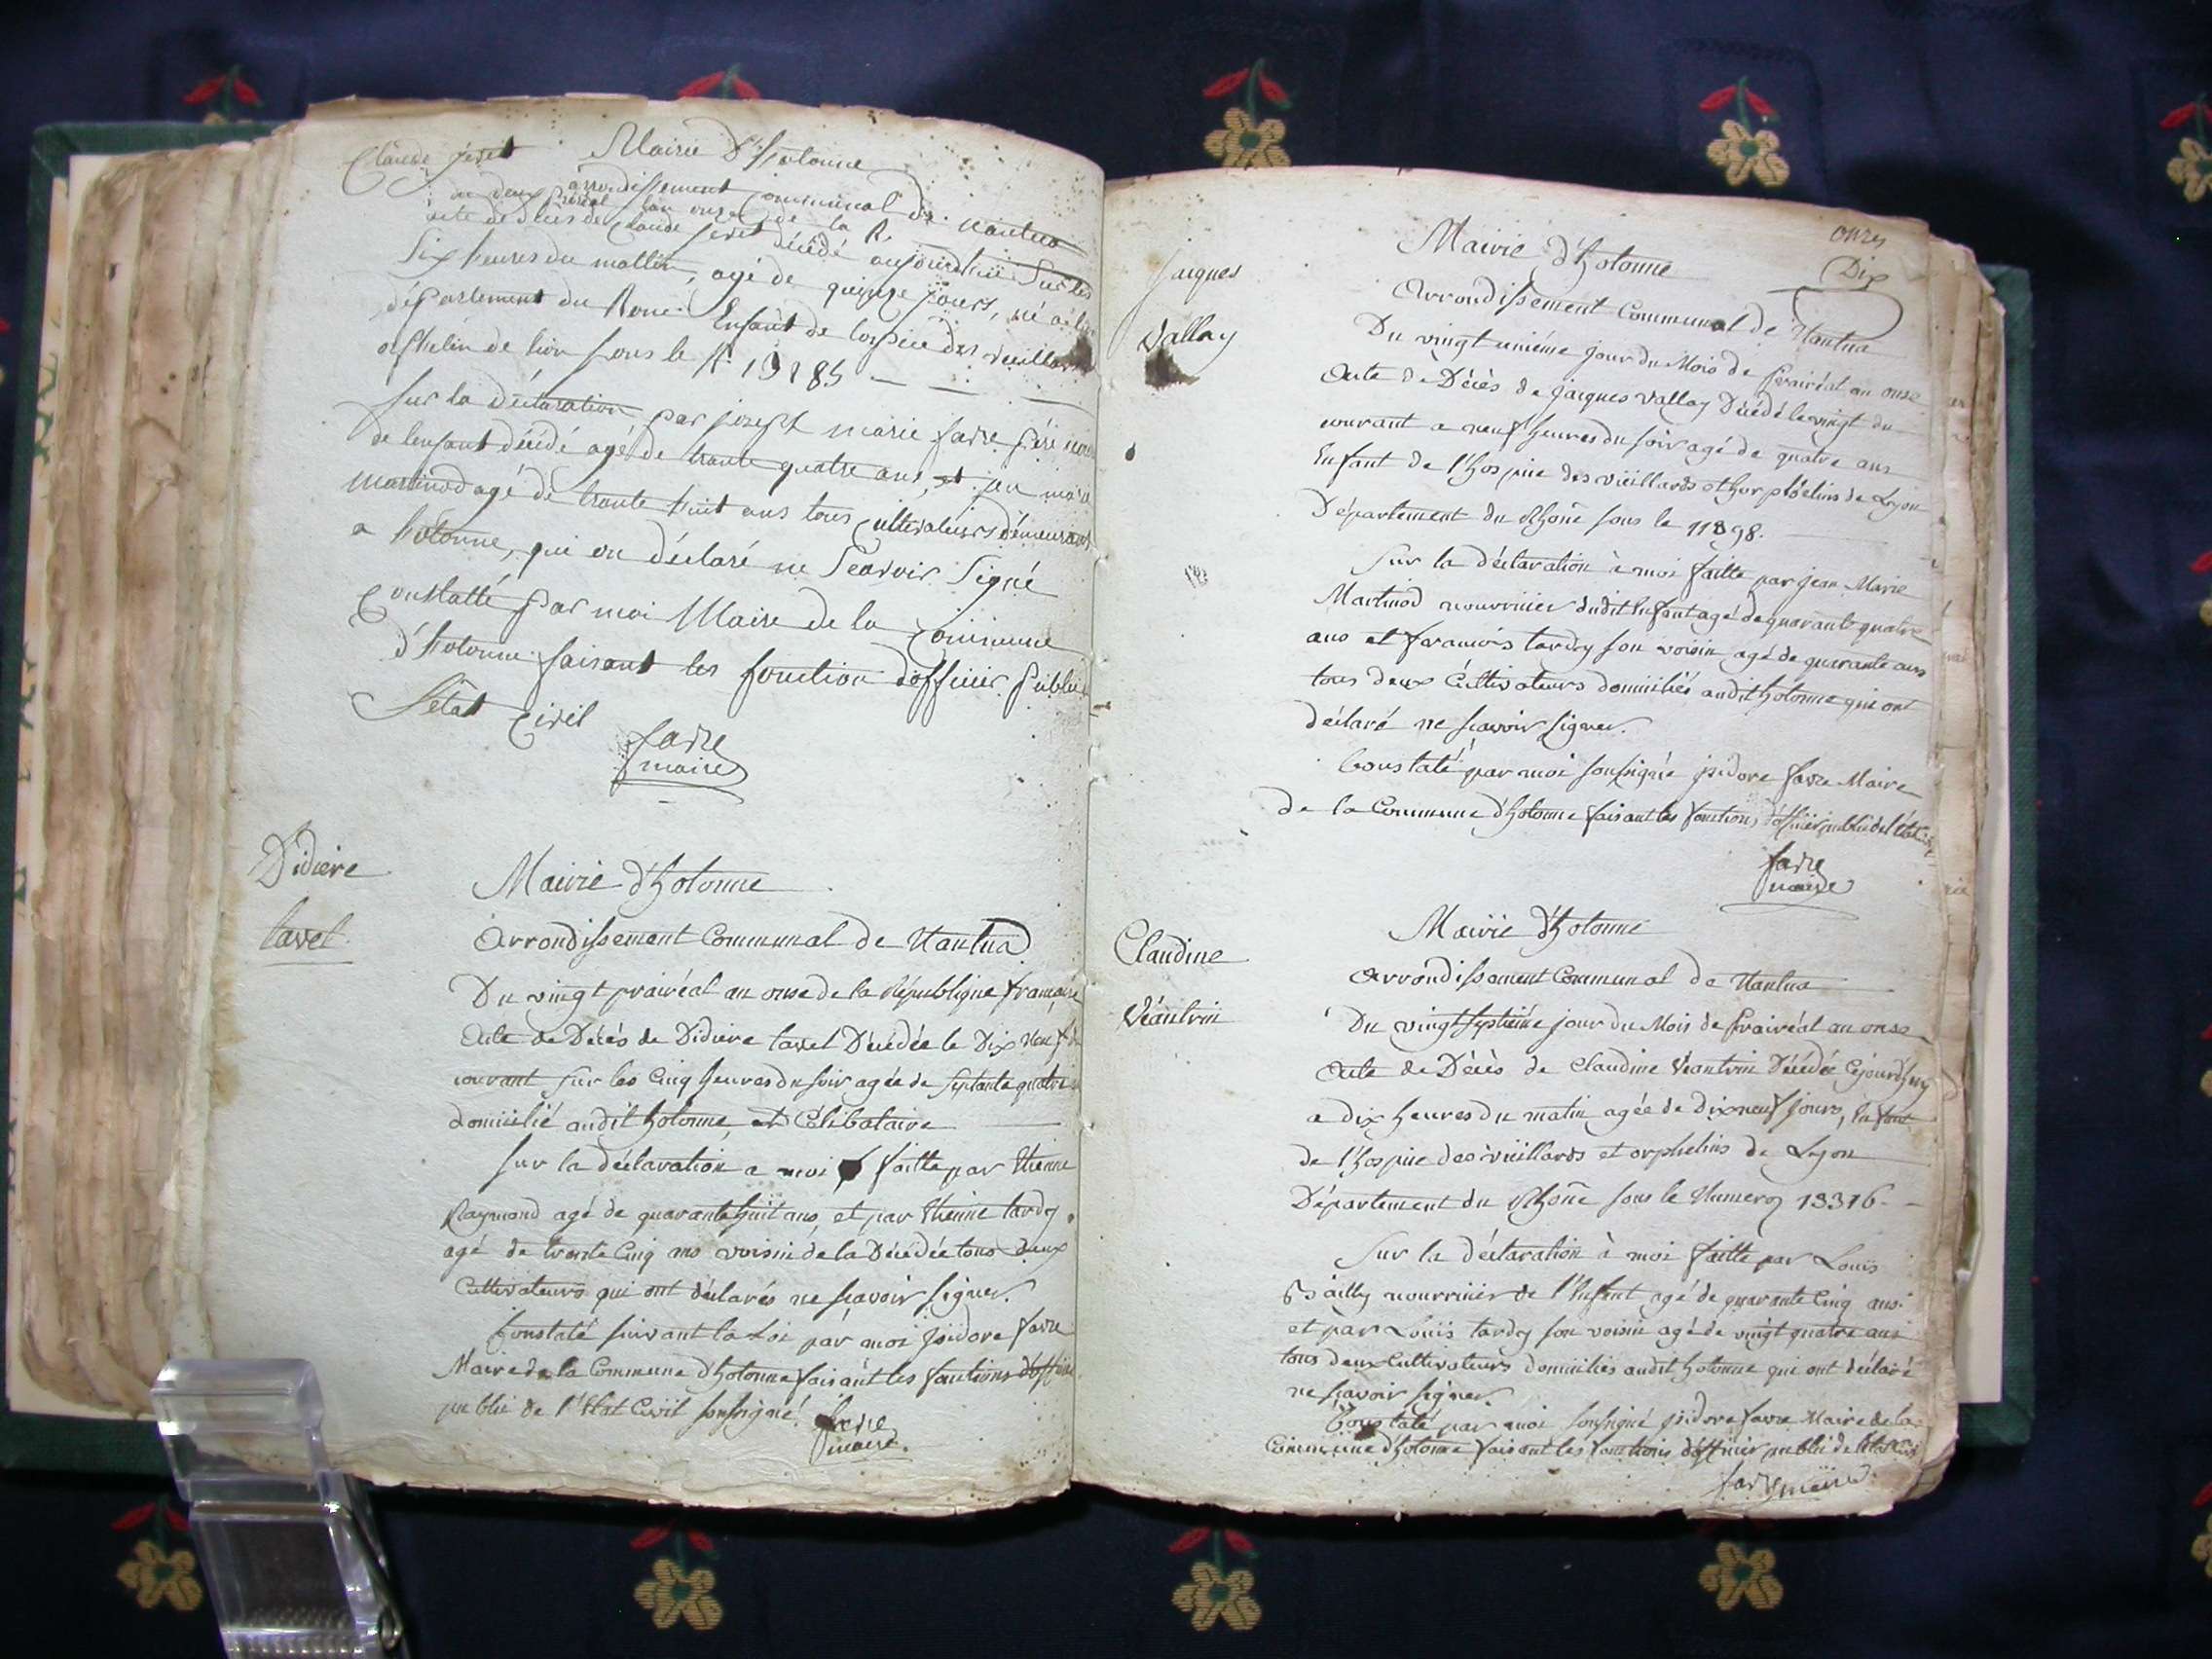 Claude
Mairie d'hotonne
arrondissement Communal de Nantua
du deux prairéal lan onze de la R.
acte de déces de Claude décédé aujourdhui Sur les
Six heures du mattin, agé de quinze jours, né a
département du Rone. Enfant de lospice des vieillards
orfhelin de lion sous le N° 19185
sur la déclaration par joseph marie favre père
de lenfant décédé agé de trante quatre ans, et jan marie
martinod agé de trante huit ans tous cultivateurs démeurant
a hotonne, qui on déclaré ne Scavoir Signé
Constatté par moi Maire de la Commune
d'hotonne faisant les fonction dofficier public
l'état Civil
favre
maire
Didiere
tavel
Mairie d'hotonne
Arrondissement Communal de Nantua
Du vingt prairéal an onse de la République française
Acte de Décés de Didiere tavel Décédée le Dix neuf du
courant sur les Cinq heures du soir agée de septante quatre
domicilié audit hotonne, et Célibataire
Sur la déclaration a moi faitte par Etienne
Raymond agé de quarante huit ans, et par Etienne tardy
agé de trente Cinq ans voisin de la Décédée tous deux
Cultivateurs qui ont déclarés ne sçavoir signer.
Constaté suivant la Loi par moi jsidore favre
Maire de la Commune d'hotonne faisant les fonctions d'officier
public de l'Etat Civil soussigné.
favre
maire
onze
Dix
jacques
Vallay
Mairie d'hotonne
Arrondissement Communal de Nantua
Du vingt unième jour du Mois de Prairéal an onse
Acte de Décès de jacques Vallay Décédé le vingt du
courant a neuf heures du soir agé de quatre ans
Enfant de l'hospice des vieillards et horphelins de Lyon
Département du Rhône sous le 11898.
Sur la déclaration à moi faitte par jean Marie
Martinod nourricier dudit Enfant agé de quarante quatre
ans et francois tardy son voisin agé de quarante ans
tous deux Cultivateurs domiciliés audit hotonne qui ont
déclaré ne scavoir signer.
Constaté par moi soussigné jsidore favre Maire
de la Commune d'hotonne faisant les fonctions d'officier public de l'état Civil
favre
maire
Claudine
Véantrin
Mairie d'hotonne
Arrondissement Communal de Nantua
Du vingt septième jour du Mois de Prairéal an onse
Acte de Décès de Claudine Véantrin Décédée Cejourdhuy
a dix heures du matin agée de dix neuf jours, Enfant
de l'hospice des vieillards et orphelins de Lyon
Département du Rhône sous le Numero 13316.
Sur la déclaration à moi faitte par Louis
Bailly nourricier de l'Enfant agé de quarante Cinq ans
et par Louis tardy son voisin agé de vingt quatre ans
tous deux Cultivateurs domiciliés audit hotonne qui ont déclaré
ne scavoir signer.
Constaté par moi soussigné jsidore favre Maire de la
Commune d'hotonne faisant les fonctions d'officier public de l'état Civil
favre maire